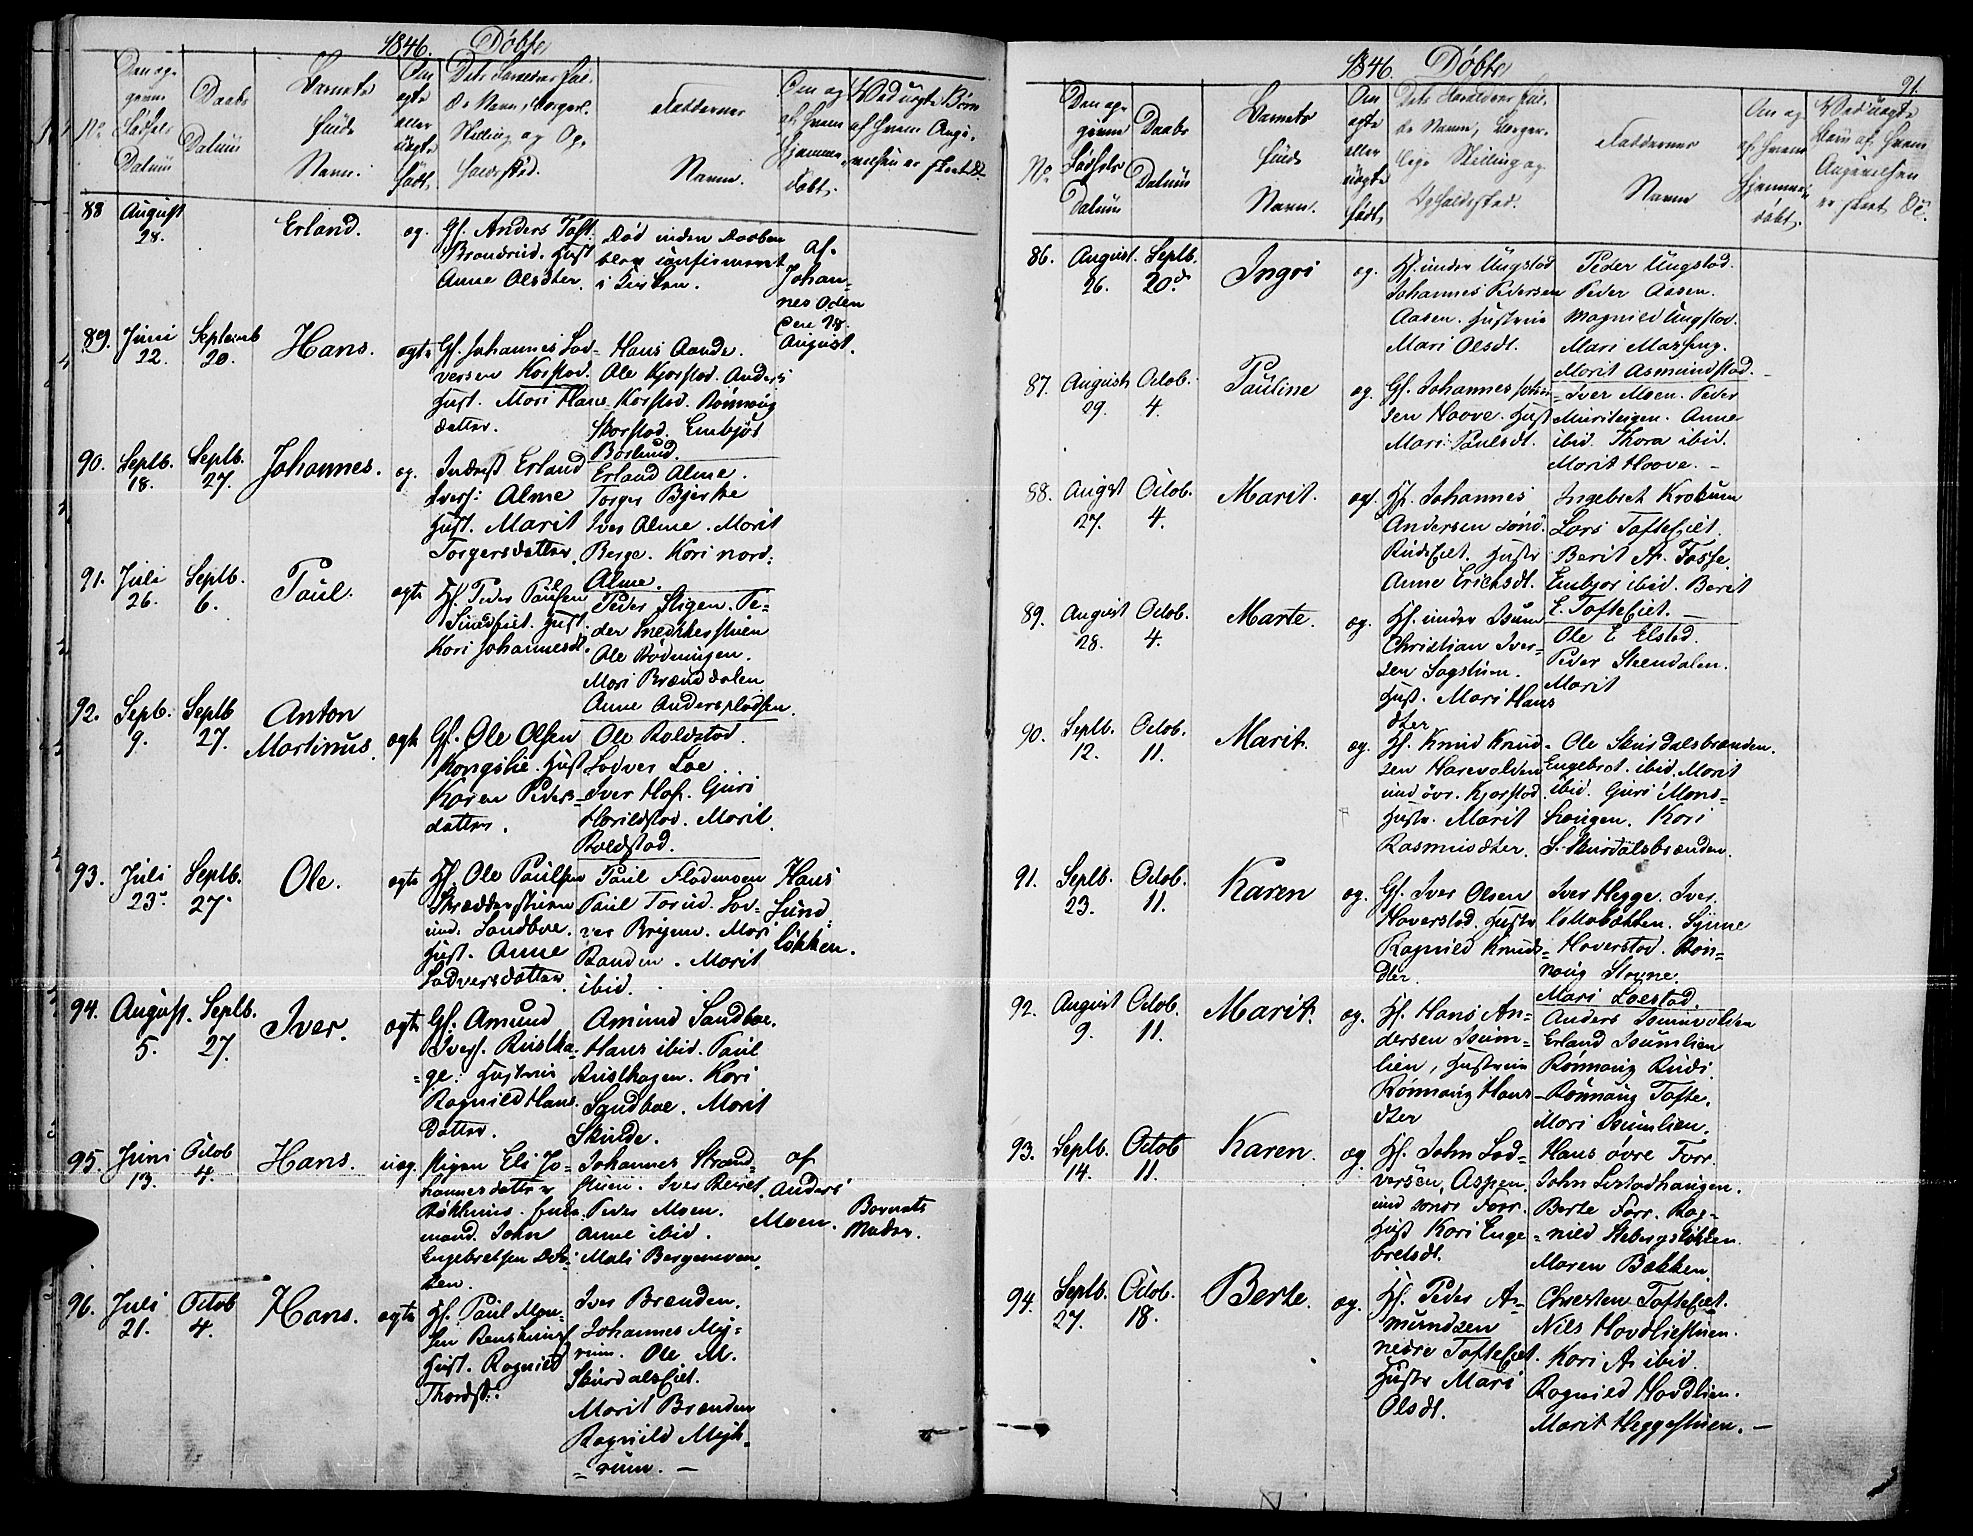 1846. Døbte
No.
Den op-
givne
Fødsels
Datum
Daabs
Datum
Barnets
fulde
Navn.
Om
ægte
eller
uægte
født.
Navn, Borgerl.
Stilling og Op-
holdsted.
Faddernes
Navn.
Om og
af hvem
hjemme-
døbt.
Ved uægte Børn
af hvem Angi-
velsen er skeet &c.
88 August
28.
Erland.
æg.
Gf. Anders Toft.
Brandrud. Hust
Anne Olsdter.
Død inden Daaben
blev confirmeret
i Kirken.
af
Johan-
nes Oden
den 28.
August.
89. Juni
22.
Septemb
20.
Hans.
ægte
Gf. Johannes Lod-
versen Korstod.
Hust. Mari Hans
datter.
Hans Aande.
Ole Kjorstod. Anders
Korstod. Rønnoug
Skorstod. Embjør
Boslund.
90. Septb.
18.
Septb.
27.
Johannes.
æg.
Inderst Erland
Ivers: Alme
Hust. Marit
Torgersdatter.
Erland Alme.
Torger Bjerke
Iver Alme. Marit
Berge. Kari nord.
Alme.
91. Juli
26.
Septb.
6.
Paul.
ægte
Hf. Peder Paulsen
Hust.
Kari Johannesdt.
Peder Stigen. Pe-
der Snedkerstuen
Ole Rødningen.
Mari Brænddalen
Anne Anderspladsen.
92. Sepb.
9.
Septb
27.
Anton
Martinus.
ægte
Gf. Ole Olsen
Kongslie. Hust
Karen Peders-
datter.
Ole Roldstad.
Lodver Loe
Iver Hof. Guri
Harildstad. Marit
Roldstad.
93. Juli
23.
Septb.
27.
Ole.
ægte
Hf. Ole Paulsen
Skrædderstuen
und. Sandboe.
Hust. Anne
Lodversdatter.
Paul Flodmoen
Paul Torud. Lod-
ver Bryen. Mari
Randen. Marit
ibid.
Hans
Sund-
løkken.
94. August.
5.
Septb.
27.
Iver.
ægte
Gf. Amund
Ivers. Rustha-
ge. Hustrue
Ragnild Hans
Datter.
Amund Sandboe.
Hans ibid. Paul
Rusthagen. Kari
Sandboe. Marit
Skurde.
95. Juni
13.
Octob
4.
Hans.
uæg.
Pigen Eli Jo-
hannesdatter
Bækkens.
mand. John
Engebretsen
Johannes Strand-
stuen. Iver
Peder Moen.
Anne ibid.
Mali Bergemoen.
af
Anders
Moen.
Barnets
Moder.
96. Juli
21.
Octob
4.
Hans.
ægte
Hf. Paul
Hust. Ragnild
Thordst:
Iver Brænden.
Johannes My-
rum. Ole M.
Skurdalseiet.
Marit Brænden
Ragnild Myh-
rum.
1846. Døbte
91.
No.
Den op-
givne
Fødsels
Datum
Daabs
Datum
Barnets
fulde
Navn.
Om
ægte
eller
uægte
født.
Navn, Borger-
lige Stilling og
Opholdssted.
Faddernes
Navn
Om og
af hvem
hjemme-
døbt.
Ved uægte
Børn af hvem
Angivelsen
er skeet &c.
86. August.
26.
Septb.
20de
Ingri
æg.
Hf. under Ungstad
Johannes Pedersen
Aasen. Hustrue
Mari Olsdt.
Peder Ungstad.
Peder Aasen.
Magnild Ungstod.
Mari Massing.
Marit Asmundstad.
87. August
29.
Octob.
4.
Pauline
æg.
Gf. Johannes Johan-
sen Hoove. Hust
Mari Paulsdt.
Iver Moen. Peder
Muristigen. Anne
ibid. Thora ibid.
Marit Hoove.
88. Augst
27.
Octob.
4.
Marit.
æg.
Hf. Johannes
Andersen sønd.
Rudseiet. Hustr
Anne Erichsdt.
Ingebret Krokum
Lars Tofteeiet.
Berit A. Fosse.
Embjør ibid. Berit
E. Tofteeiet.
89. August
28.
Octob.
4.
Marte.
æg.
Hf. under Isum
Christian Iver-
sen Sagstuen.
Hust. Mari Hans
dter
Ole E Elstad.
Peder Steendalen.
Marit
90. Septb.
12.
Octob.
11.
Marit.
æg.
Hf. Knud Knud-
sen Harevolden
und øvr. Kjorstad
Hustr. Marit
Rasmusdter.
Ole Skurdalsbrænden.
Engebret. ibid. Marit
ibid. Guri Mons-
haugen. Kari
S. Skurdalsbrænden.
91. Septb.
23.
Octob.
11.
Karen
æg.
Gf. Iver Olsen
Haverstad. Hustr
Ragnild Knuds-
dter.
Iver Hegge. Iver
Ullabakken. Synne
Haverstad. Røn-
noug Stovne.
Mari Loestad.
92. August
9.
Octob.
11.
Marit.
æg.
Hf. Hans An-
dersen Isum-
lien, Hustrue
Rønnoug Hans-
dter
Anders Isumvolden
Erland Isumlien
Rønnoug Rudi.
Rønnoug Tofte.
Mari Isumlien.
93. Septb.
14.
Octob
11.
Karen.
æg.
Hf. John Lod-
versen, Aspen.
und søndr Forr.
Hust Kari Enge-
bretsdt.
Hans øvre Forr.
John Listadhaugen.
Berte Forr. Rag-
nild Stebergsløkken.
Maren Bakken.
94. Septb.
27.
Octob.
18.
Berte.
æg.
Hf. Peder A-
mundsen
nedre Tofteeiet.
Hustr Mari
Olsdt.
Christen Tofteeiet.
Nils Hovdliestuen.
Kari A. ibid.
Ragnild Hovdlien.
Marit Heggestuen.